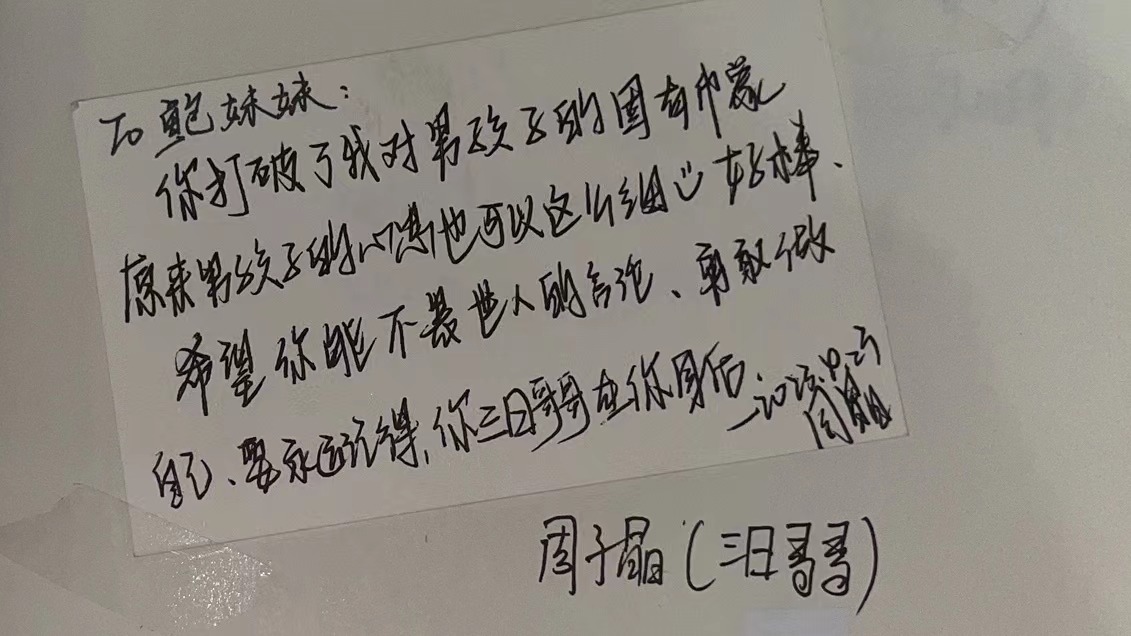 To 鲍妹妹：
你打破了我对男孩子的固有印象
原来男孩子的心思也可以这么细心好棒、
希望你能不畏世人的言论、勇敢做
自己、要永远记得，你三日哥哥在你身后
周晶
周子晶（三日哥哥）